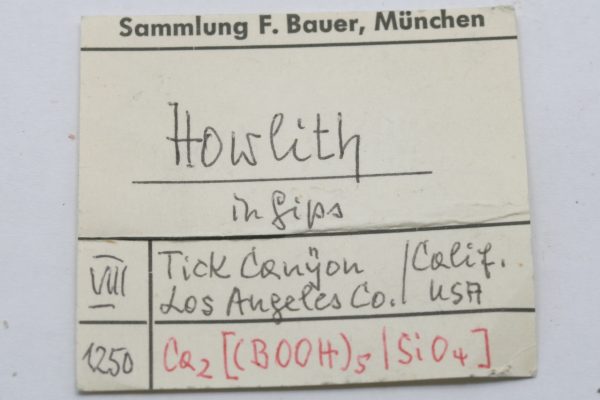 Sammlung F. Bauer, München
Howlith
in Gips
VIII
Tick Canÿon / Calif.
Los Angeles Co. USA
1250
Ca₂[(BOOH)₅|SiO₄]